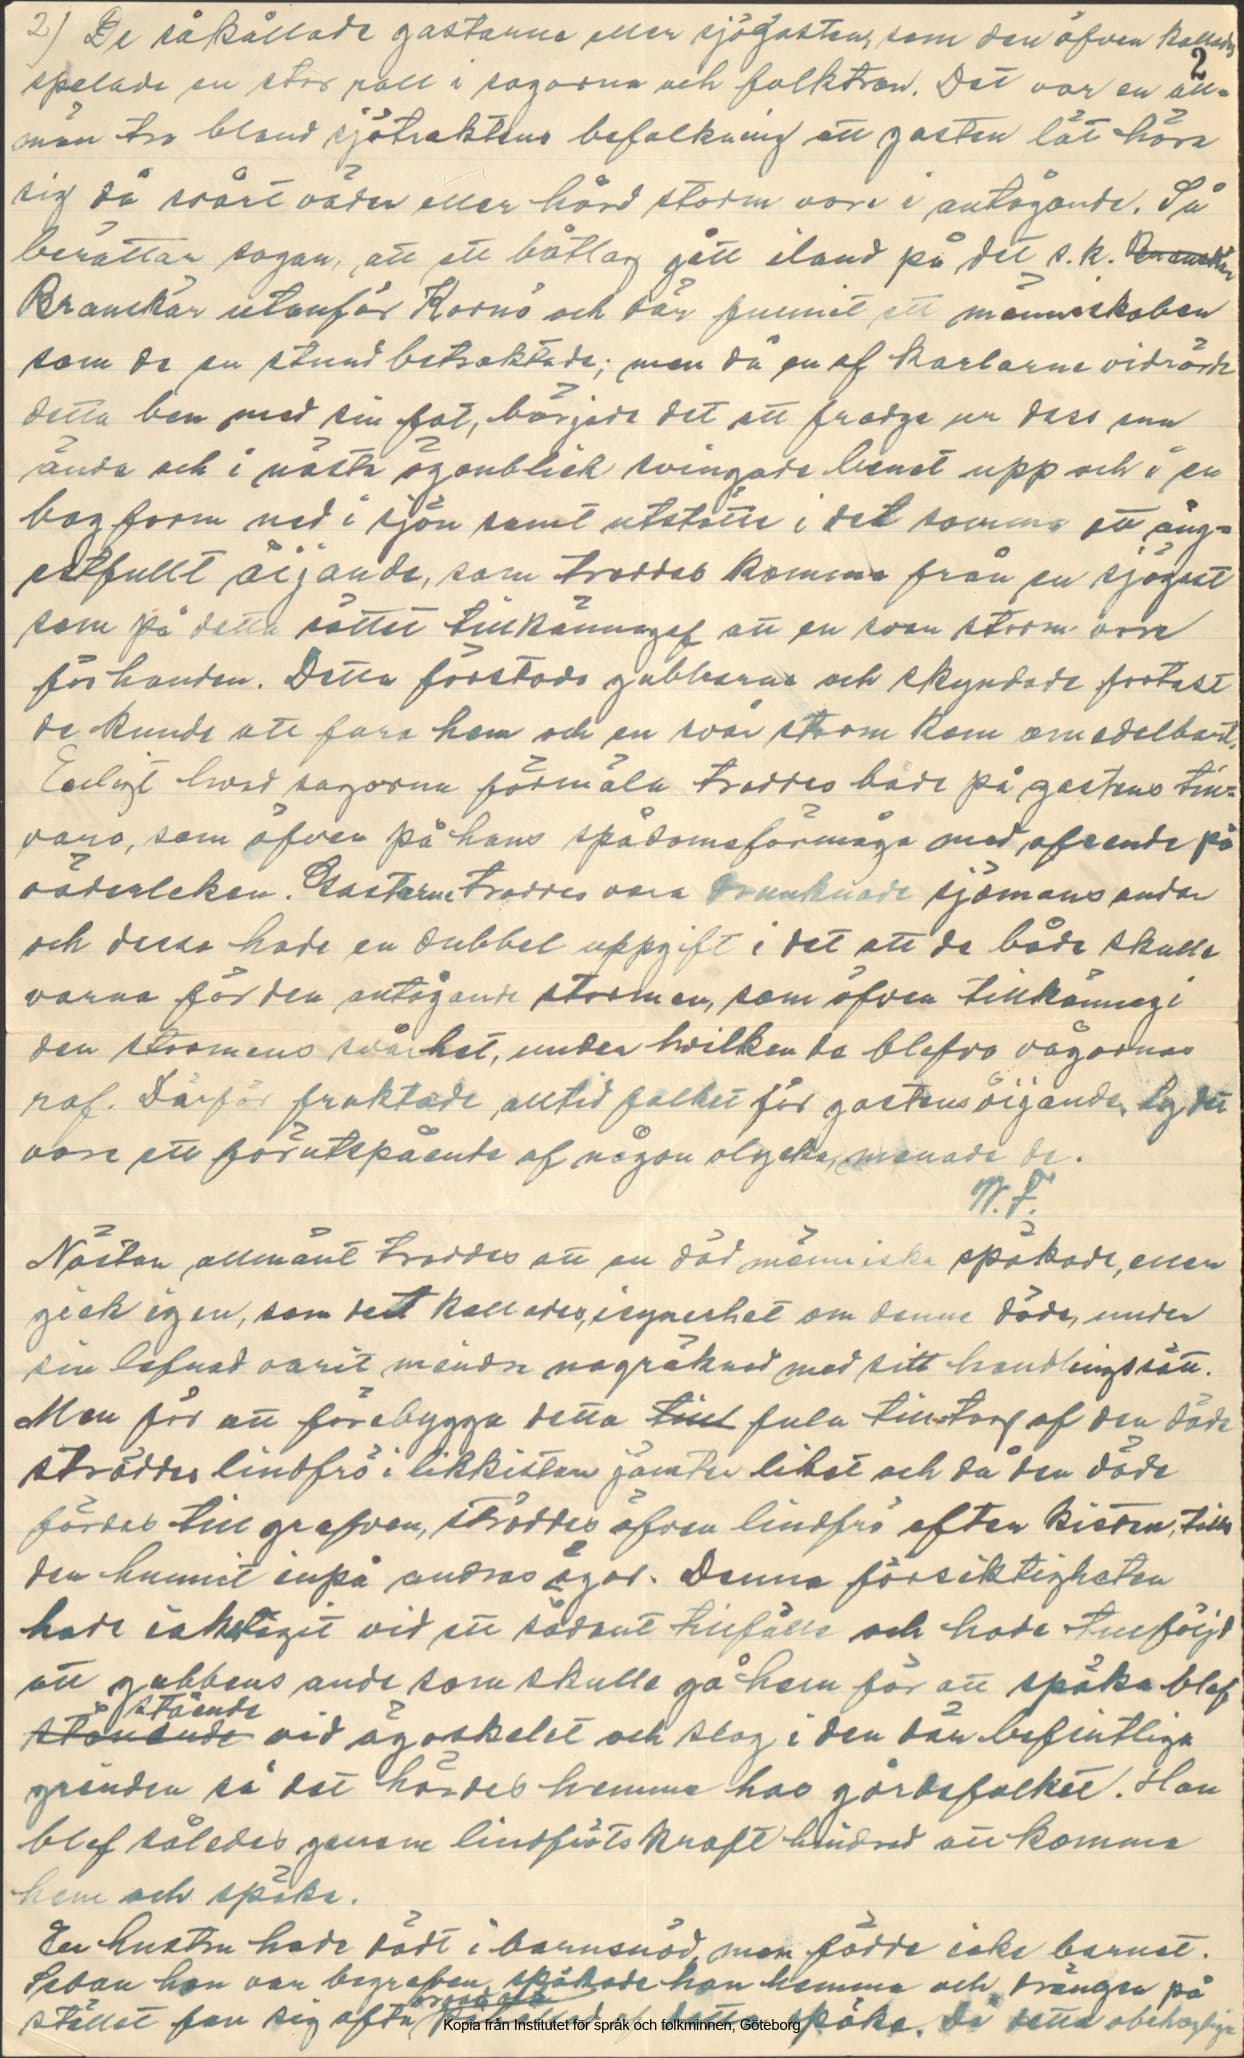 2) De såkallade gastarne eller sjögasten, som den öfven kallades
2
spelade en stor roll i sagorna och folktron. Det var en all-
män tro bland sjötraktens befolkning att gasten lät höra
sig då svårt väder eller hård storm vore i antågande. Så
berättar sagan, att ett båtlag gått iland på det s.k. Branskär
Branskär utanför Kornö och där funnit ett människoben
som de en stund betraktade; men då en af karlarne vidrörde
detta ben med sin fot, började det att fradga ur dess ena
ända och i nästa ögonblick svingade benet upp och i en
bog form ned i sjön samt utstötte i det samma ett äng-
estfullt öijande, som troddes komma från en sjögast
som på detta sättet tillkännagaf att en svår storm vore
för handen. Detta förstodo gubbarna och skyndade fortast
de kunde att fara hem och en svår storm kom omedelbart.
Enligt hvad sagorna förmäla troddes både på gastens till-
varo, som öfven på hans spådomsförmåga med afseende på
väderleken. Gastarne troddes vara drunknade sjömans andar
och dessa hade en dubbel uppgift i det att de både skulle
varna för den antågande stormen, som öfven tillkännagi
den stormens svårhet, under hvilken de blefvo vågornas
rof. Därför fruktade alltid folket för gastens öijande, ty det
vore ett förutspående af någon olycka, menade de.
W. F.
Nästan allmänt troddes att en död människa spökade, eller
gick igen, som det kallades, isynnerhet om denne döde, under
sin lefnad varit mindre nogräknad med sitt handlingssätt.
Men för att förebygga detta till fula tilltag af den döde
ströddes lindfrö i likkistan jämte liket och då den döde
fördes till grafven, ströddes öfven lindfrö efter kistan, tills
den hunnit inpå andras ägor. Denna försiktigheten
hade iakttagit vid ett sådant tillfälle och hade tillföljd
att gubbens ande som skulle gå hem för att spöka blef
stående
stånande vid ägoskelet och slog i den där befintliga
grinden så det hördes hemma hos gårdsfolket. Han
blef således genom lindfröts kraft hindrad att komma
hem och spöka.
En hustru hade dödt i barnsnöd, men födde icke barnet.
Sedan hon var begrafven, spökade hon hemma och drängen på
stället fan sig ofta detta spöke. Då detta obehagliga
Kopia från Institutet för språk och folkminnen, Göteborg